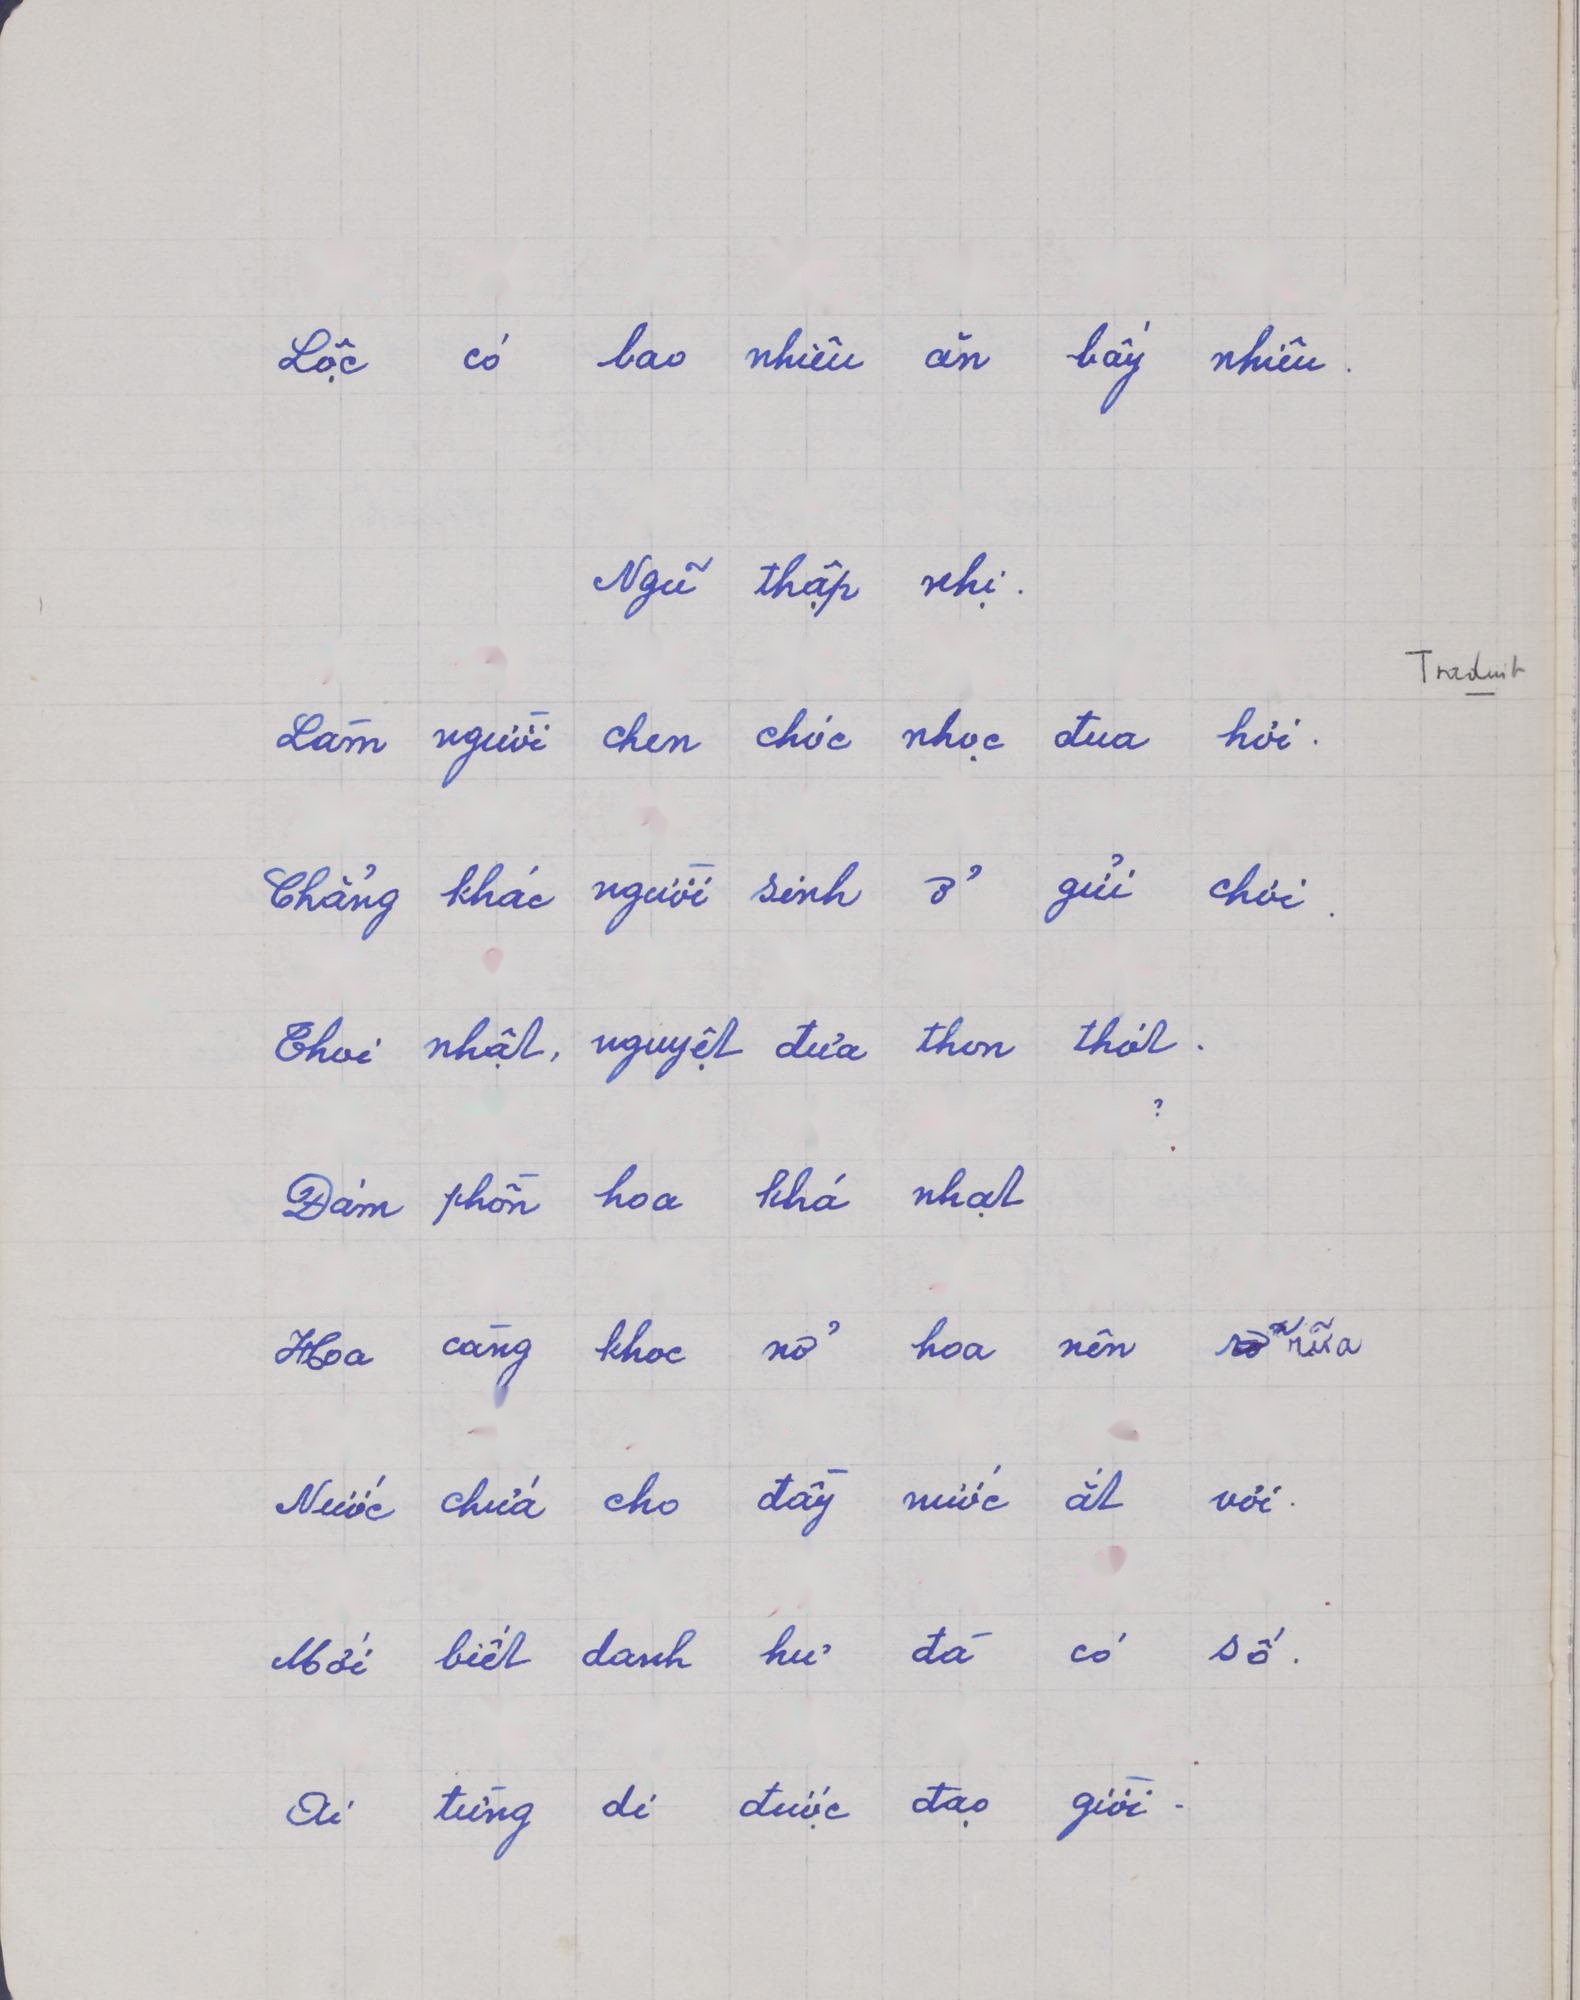 Lộc có bao nhiêu ăn bấy nhiêu.
Ngũ thập nhị.
Traduit
Làm người chen chóc nhọc đua hơi.
Chẳng khác người sinh ở gửi chơi.
Thoi nhật, nguyệt đưa thon thót.
?
Đám phồn hoa khá nhạt
Hoa càng khoe nở hoa nên rữa
Nước chứa cho đầy nước ắt vơi.
Mới biết danh hư đã có số.
Ai từng di được đạo giời.